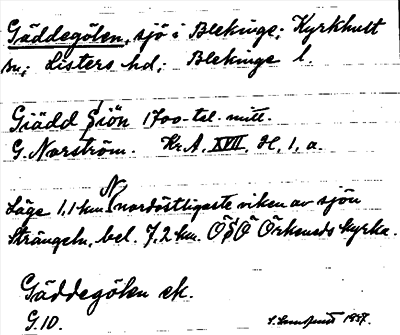 Gäddegölen, sjö i Blekinge; Kyrkhult
sn; Listers hd; Blekinge l.
Giädd Siön 1700-tal. mitt.
G. Narström. Kr. A, XVII, H, 1, a.
Läge 1,1 km N nordöstligaste viken av sjön
Strängeln, bel. 7,2 km. ÖSÖ Örkeneds kyrka.
Gäddegölen ek.
G. 10.
1957.